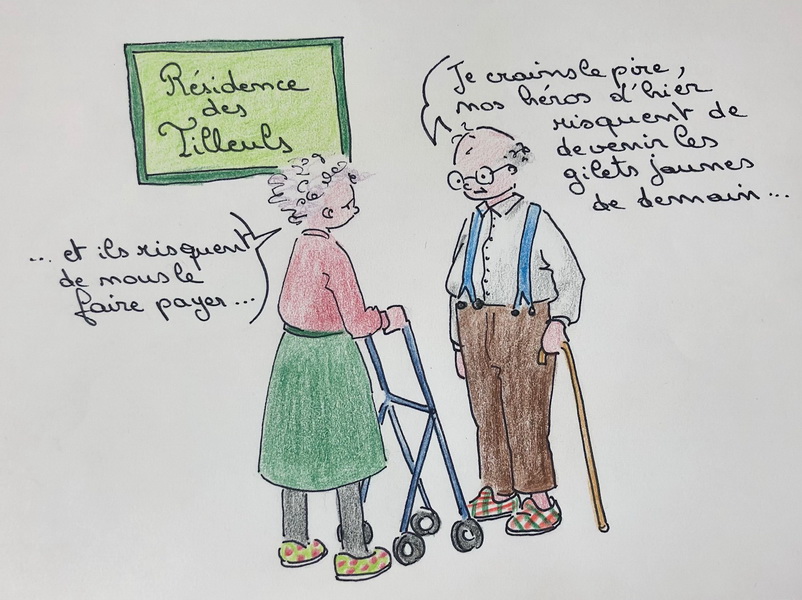 Résidence
des
Tilleuls
Je crains le pire,
nos héros d'hier
risquent de
devenir les
gilets jaunes
de demain...
... et ils risquent
de nous le
faire payer...